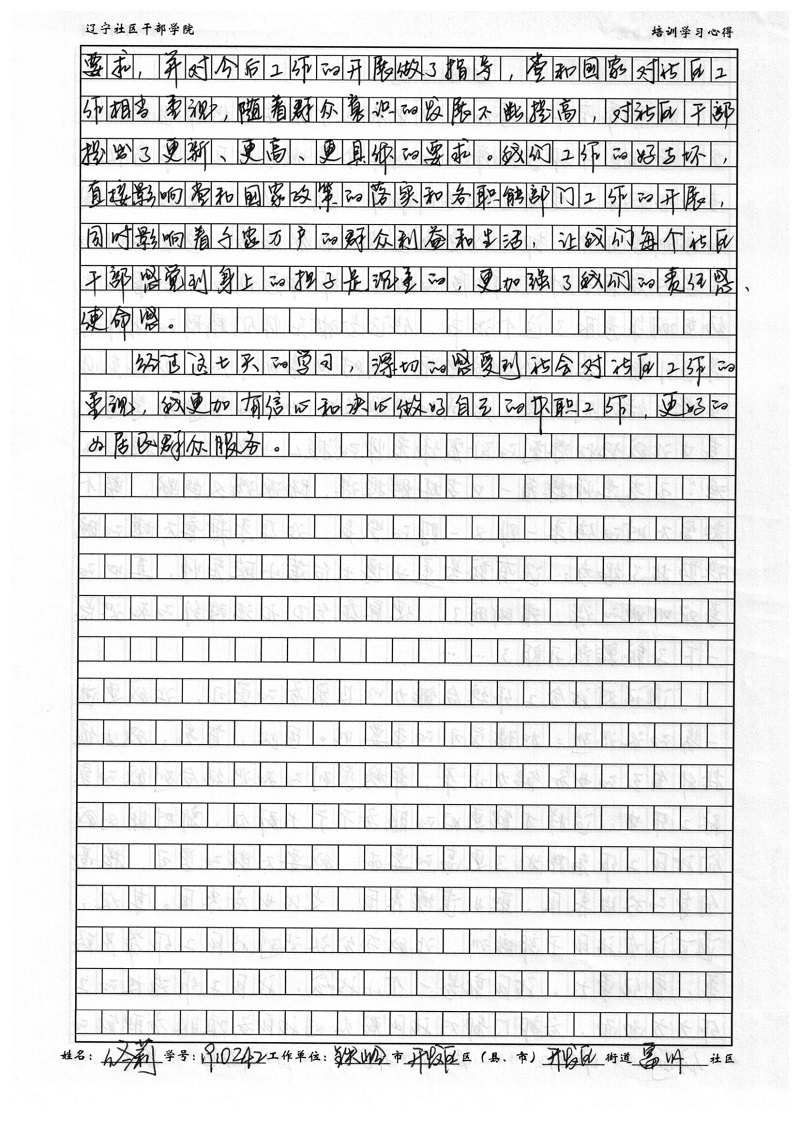 辽宁社区干部学院 培训学习心得
要求，并对今后工作的开展做了指导，党和国家对社区工
作相当重视，随着群众意识的发展不断提高，对社区干部
提出了更新、更高、更具体的要求。我们工作的好与坏，
直接影响党和国家政策的落实和各职能部门工作的开展，
同时影响着千家万户的群众利益和生活，让我们每个社区
干部感觉到身上的担子是沉重的，更加强了我们的责任感、
使命感。
经过这七天的学习，深切的感受到社会对社区工作的
重视，我更加有信心和决心做好自己的本职工作，更好的
为居民群众服务。
姓名： 莉 学号： 10242 工作单位： 铁岭 市 开发区 区（县、市） 开发区 街道 富州 社区